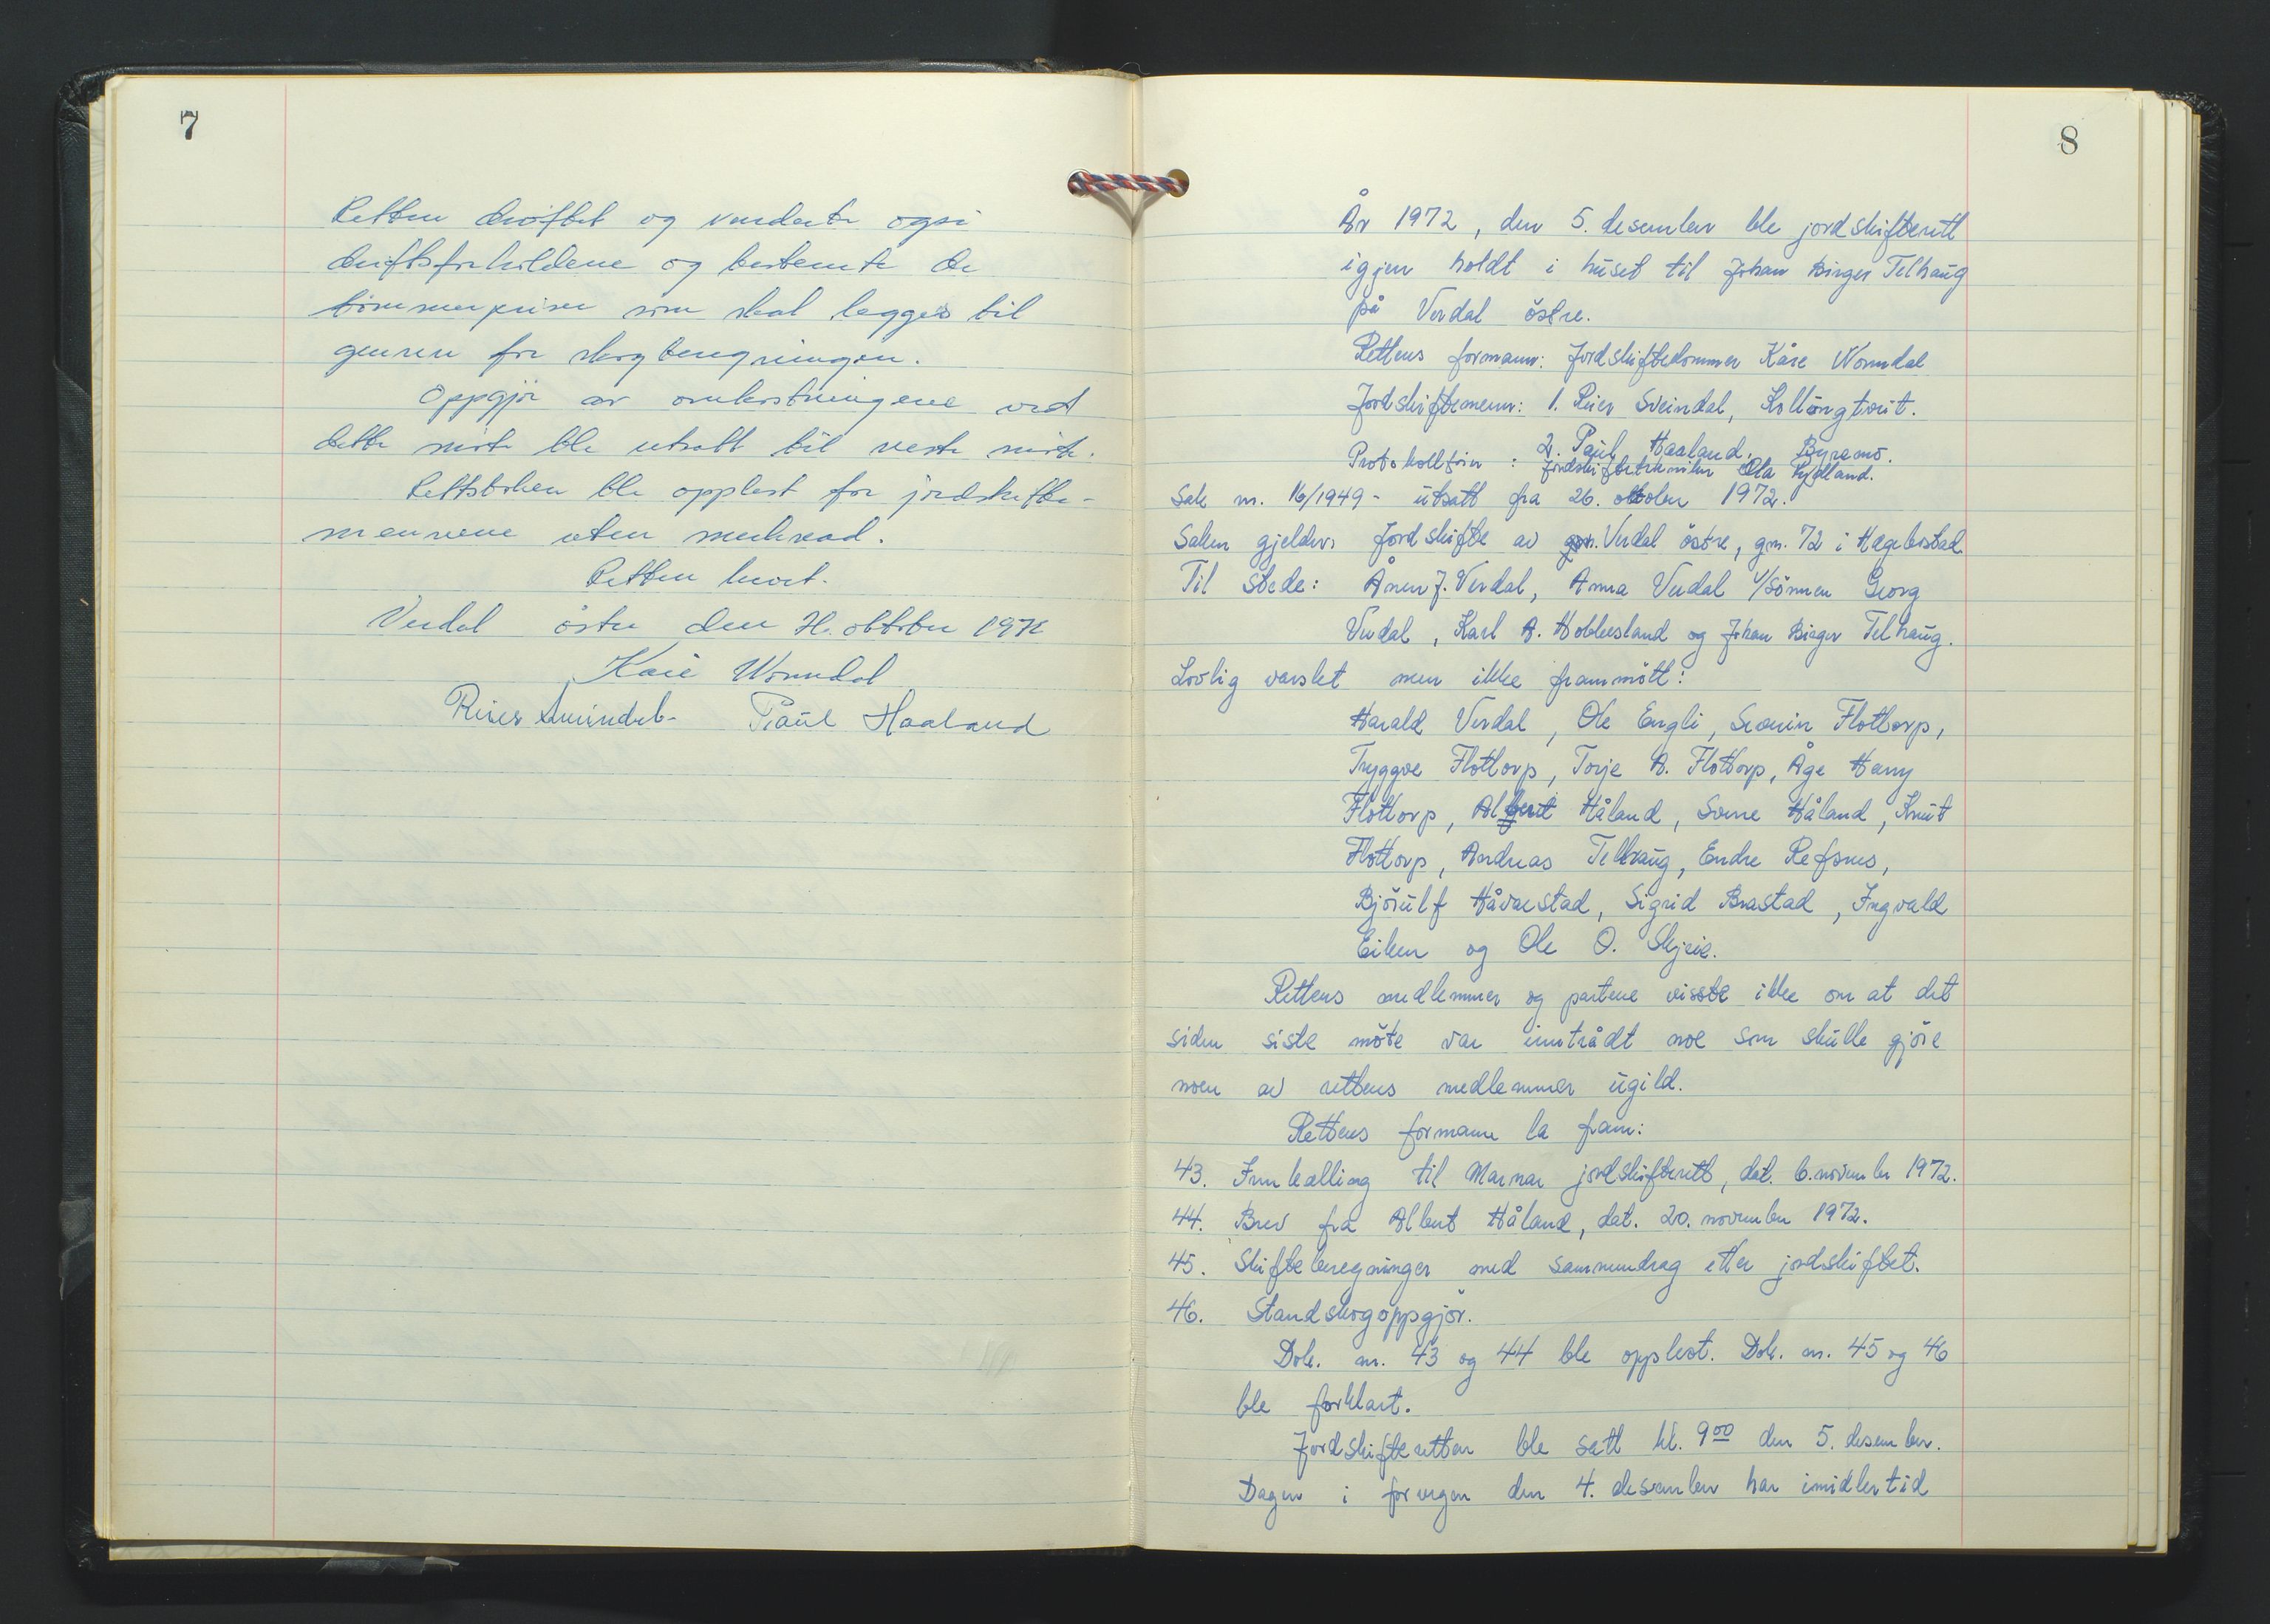 7
Retten drøftet og vurderte også
driftsforholdene og bestemte de
tømmerpriser som skal legges til
grunn for skogberegningen.
Oppgjør av omkostningene ved
dette møte ble utsatt til neste møte.
Rettsboken ble opplest for jordskifte-
mennene uten merknad.
Retten hevet.
Verdal østre den 26. oktober 1972
Kåre Womdal
Reier Sveindal Paul Haaland
8
År 1972, den 5. desember ble jordskifterett
igjen holdt i huset til Johan Birger Telhaug
på Verdal östre.
Rettens formann: Jordskiftedommer Kåre Womdal
Jordskiftemenn: 1. Reier Sveindal, Kollungtveit.
2. Paul Haaland, Byremo.
Protokollfører: Jordskiftetekniker Ola Rydland.
Sak nr. 16/1949 - utsatt fra 26. oktober 1972.
Saken gjelder: Jordskifte av Verdal östre, gnr. 72 i Hægebostad
Til stede: Ånen J. Verdal, Anna Verdal v/sönnen Georg
Verdal, Karl A. Hobbesland og Johan Birger Telhaug.
Lovlig varslet men ikke frammött:
Harald Verdal, Ole Engli, Flottorp,
Tryggve Flottorp, Torje A. Flottorp, Åge Harry
Flottorp, Albert Håland, Sverre Håland, Knut
Flottorp, Andreas Telhaug, Endre Refsnes,
Björulf Håvarstad, Sigrid Brastad, Ingvald
Eiken og Ole O. Skjeie.
Rettens medlemmer og partene visste ikke om at det
siden siste möte var inntrådt noe som skulle gjöre
noen av rettens medlemmer ugild.
Rettens formann la fram:
43. Innkalling til Marnar jordskifterett, dat. 6. november 1972.
44. Brev fra Albert Håland, dat. 20. november 1972.
45. Skifteberegninger med sammendrag etter jordskiftet.
46. Standskogoppgjör.
Dok. nr. 43 og 44 ble opplest. Dok. nr. 45 og 46
ble forklart.
Jordskifteretten ble satt kl. 9 00 den 5. desember.
Dagen i forvegen den 4. desember har imidlertid